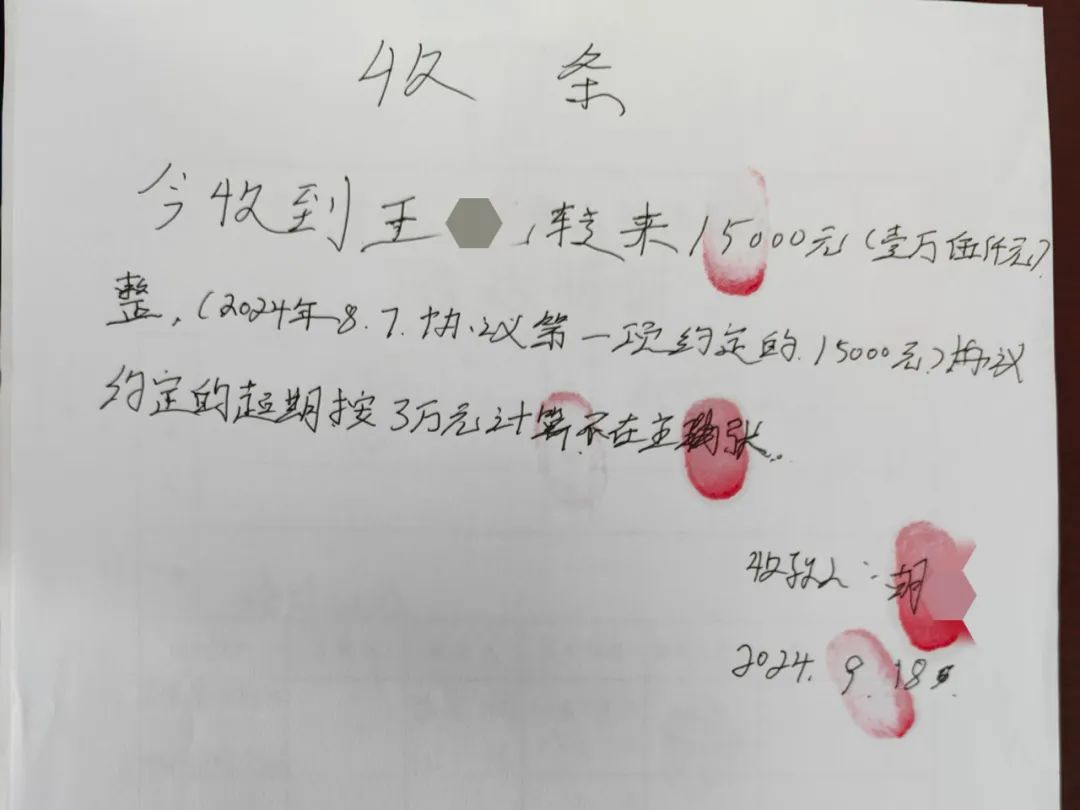 收 条
今收到王 转来15000元(壹万伍仟元)
整,(2024年8.7.协议第一项约定的15000元)协议
约定的超期按3万元计算不在主张..
收款人: 胡
2024.9.18